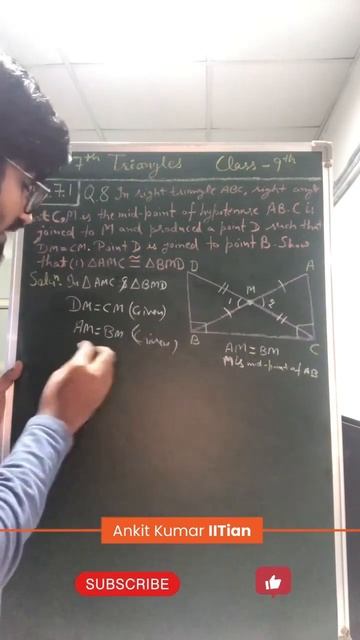 7th Triangles Class-9th
7.1 Q.8 In right triangle ABC, right angle
at C, M is the mid-point of hypotenuse AB. C is
joined to M and produced a point D such that
DM=CM. Point D is joined to point B. Show
that (1) △AMC ≅ △BMD
Sol:- In △AMC & △BMD
DM=CM (Given)
AM=BM (Given)
D
A
M
1
2
B
C
AM=BM
M is mid-point of AB
Ankit Kumar IITian
SUBSCRIBE